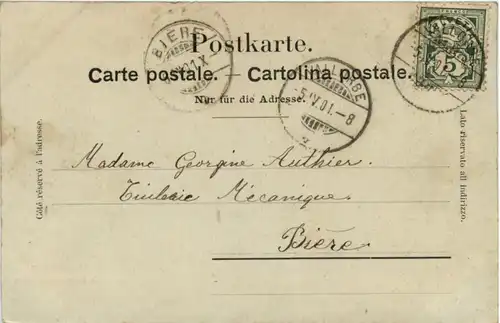 Postkarte.
Carte postale. — Cartolina postale.
Nur für die Adresse.
BIERE
VALLORBE
5.IV.01.-8
VALLORBE
5
Côté réservé à l'adresse.
Lato riservato all indirizzo.
Madame Georgine Authier
Mécanique
Bière